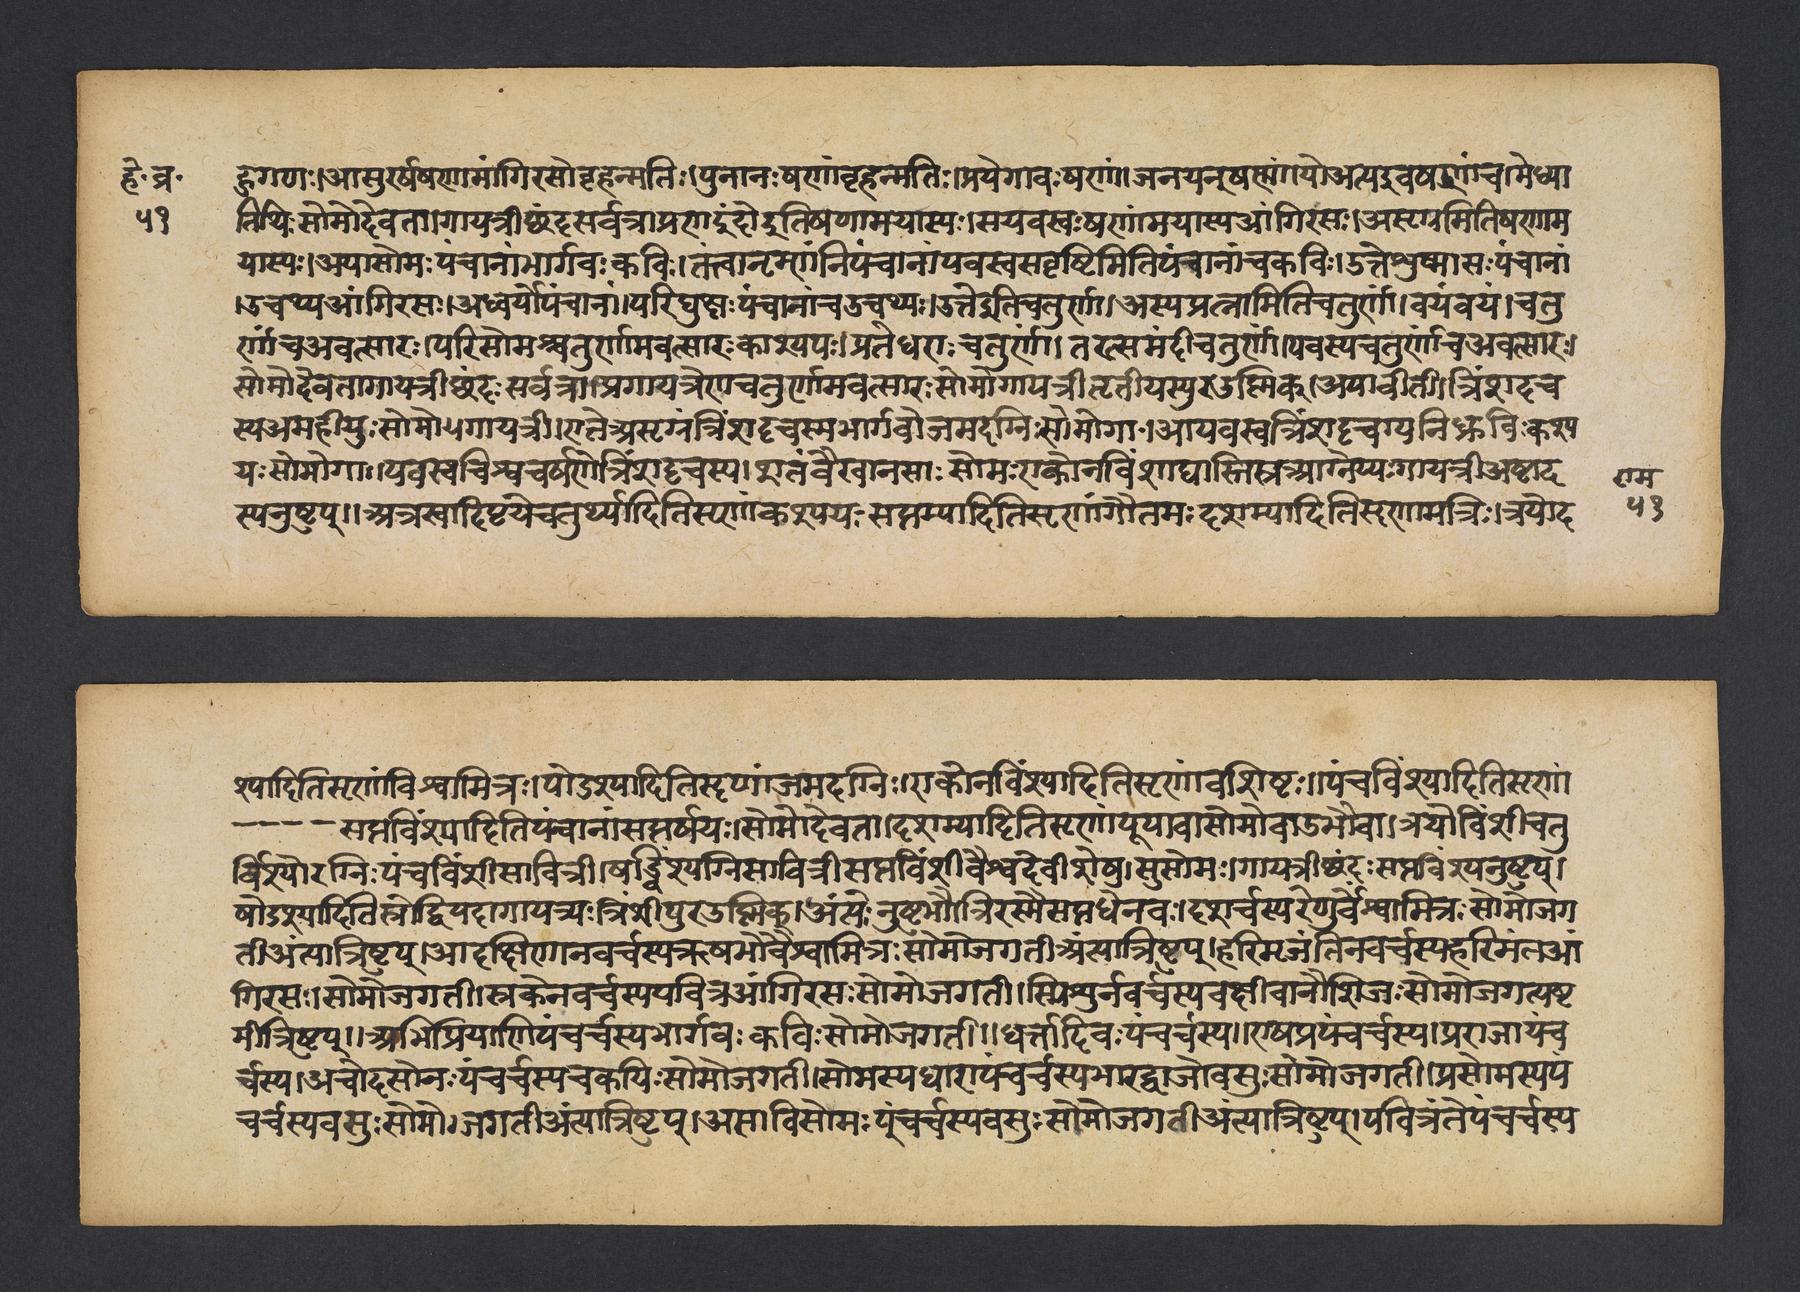 हे॰ व्र॰
५१
हूगणः।आसुरर्षषण्णामांगिरसोवृहन्मतिः।पुनानःषण्णांवृहन्मतिः।प्रयेगावःषण्णां।जनयन्षण्णांयोअत्यइवषण्णांच।मेध्या
तिथिःसोमोदेवता।गायत्रीछंदःसर्वत्रा।प्रणइंदोइतिषण्णामयास्यः।सपवस्वःषण्णांमयास्यआंगिरसः।असृग्रमितिषण्णाम
यास्यः।अयासोमःपंचानांभार्गवःकविः।तंत्वानृम्णांनिपंचानांपवस्वसवृष्टिमितिपंचानांचकविः।उत्तेशुष्मासःपंचानां
।उचथ्यआंगिरसः।अध्वर्योपंचानां।परिद्युक्षःपंचानांचउचथ्यः।उत्तेइतिचतुर्णां।अस्यप्रत्नामितिचतुर्णां।वयंवयं।चतु
र्णांचअवत्सारः।परिसोमश्चतुर्णामवत्सारःकाश्यपः।प्रतेधाराःचतुर्णां।तरत्समंदीचतुर्णां।पवस्यचतुर्णांचअवत्सारः।
सोमोदेवतागायत्रीछंदःसर्वत्रा।प्रगायत्रेणचतुर्णामवत्सारःसोमोगायत्रीतृतीयस्पुरउष्णिक्।अयावीती।त्रिंशदृच
स्यअमहीयुःसोमो५गायत्री।एतेअसृग्नंत्रिंशदृचस्मभार्गवोजमदग्निःसोमोगा॰।आपवस्वत्रिंशदृचग्यनिध्रुविःकश्प
यःसोमोगा॰।पवस्वविश्वचर्षणेत्रिंशदृचस्य।शतंवैखानसाःसोमःएकोनविंशाद्यास्तिस्रआग्नेय्यःगायत्रीअष्टाद
स्यनुष्टुप्।।अत्रखादिष्टयेचतुर्थ्यादितिसृणांकश्पयःसप्तम्यादितिसृणांगौतमःदशम्यादितिसृणामत्रिः।त्रयोद
राम
५१
श्यादितिसृणांविश्वामित्रः।षोडश्यादितिसृणांजमदग्निः।एकोनविंश्यादितिसृणांवशिष्टः॥पंचविंश्यादितिसृणां
– – – –सप्तविंश्यादितिपंचानांसप्तर्षयः।सोमोदेवता।दशम्यादितिसृणांपूषावासोमोवाउभौवा।त्रयोविंशीचतु
र्विंश्योरग्निःपंचविंशीसावित्री।षड्विंश्यग्निसावित्रीसप्तविंशीवैश्वदेवीशेषु।सुसोमः।गायत्रीछंदःसप्तविंश्यनुष्टुप्।
षोडश्यादितिस्रोद्विपदागायत्र्यःत्रिंशीपुरउष्णिक्।अंत्येनुष्टभौत्रिरस्मैसप्तधेनवः।दशर्चस्यरेणुर्वैश्वामित्रःसोमोजग
तीअंत्यात्रिष्टुप्।आदक्षिणानवर्चस्यऋषभोवैश्वामित्रःसोमोजगतीअंत्यात्रिष्टुप्।हरिमजंतिनवर्चस्यहरिमंतआं
गिरसः।सोमोजगती।स्रक्वेनवर्चस्यपवित्रआंगिरसःसोमोजगती।स्पिशुर्नवर्चस्यवक्षीवानौशिजःसोमोजगत्यष्ट
मीत्रिष्टुप्।।अभिप्रियाणिपंचर्चस्यभार्गवःकविःसोमोजगती॥धर्त्तादिवःपंचर्चस्य॥एषप्रपंचर्चस्य।प्रराजायंच
र्चस्य।अचोदसोनःपंचर्चस्यचकयिःसोमोजगती।सोमस्यधारापंचर्चस्यभारद्वाजोवसुःसोमोजगती।प्रसोमस्यपं
चर्चस्यवसुःसोमो।जगतीअंत्यात्रिष्टुप्।असाविसोमःपंचर्चस्यवसुःसोमोजगतीअंत्यात्रिष्टुप्।पवित्रंतेपंचर्चस्य